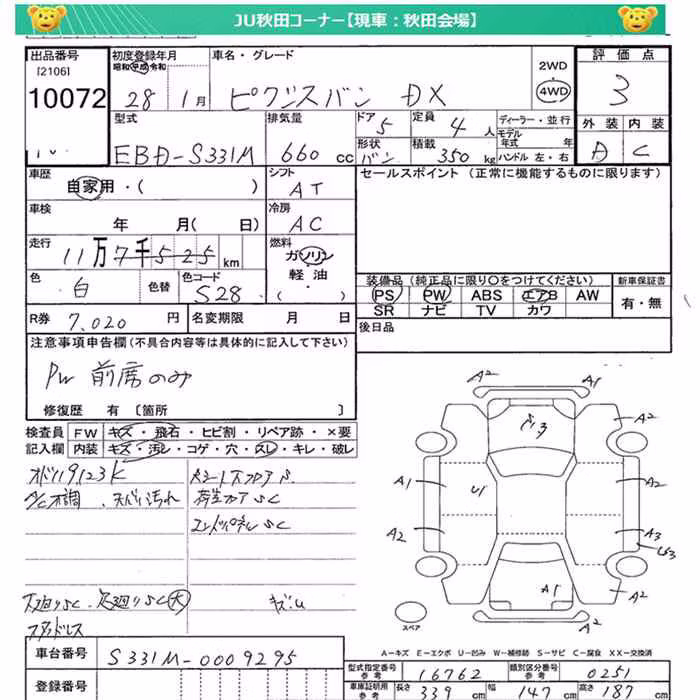 JU秋田コーナー【現車：秋田会場】
出品番号 初度登録年月 車名・グレード 2WD・4WD 評価点
[2106] 昭和 平成 令和
10072 28年 1月 ピクシスバン DX 3
型式 排気量 ドア 定員 ディーラー・並行 外装 内装
EBD-S331M 660cc 5 4人 モデル年式 年 D C
形状 バン 積載 350kg ハンドル 左・右
車歴 シフト セールスポイント（正常に機能するものに限ります）
自家用・（ ） AT
車検 冷房
年 月（ 日） AC
走行 燃料
11万7千525km ガソリン
軽油・
色 色替 色コード
白 S28
装備品（純正品に限り○をつけてください） 新車保証書
PS PW ABS エアB AW 有・無
SR ナビ TV カワ
R券 7,020円 名変期限 月 日 後日品
注意事項申告欄（不具合内容等は具体的に記入して下さい）
PW 前席のみ
修復歴 有 〔箇所 〕
検査員 FW キズ・飛石・ヒビ割・リペア跡・×要
記入欄 内装 キズ・汚レ・コゲ・穴・スレ・キレ・破レ
A/C不調、天バリ汚れ
コアサポートSC
下廻りSC、足廻りSC大 キズ.U
スタッドレス
A2 A1
A2 A2
A3
A1 U1 A2
A2 A3
U3
A1 A2
A2
スペア
A－キズ E－エクボ U－凹み W－補修跡 S－サビ C－腐食 XX－交換済
車台番号 S331M-0009295
型式指定番号 参考 16762 類別区分番号 参考 0251
登録番号 車庫証明用 参考 長さ 339cm 幅 147cm 高さ 187cm